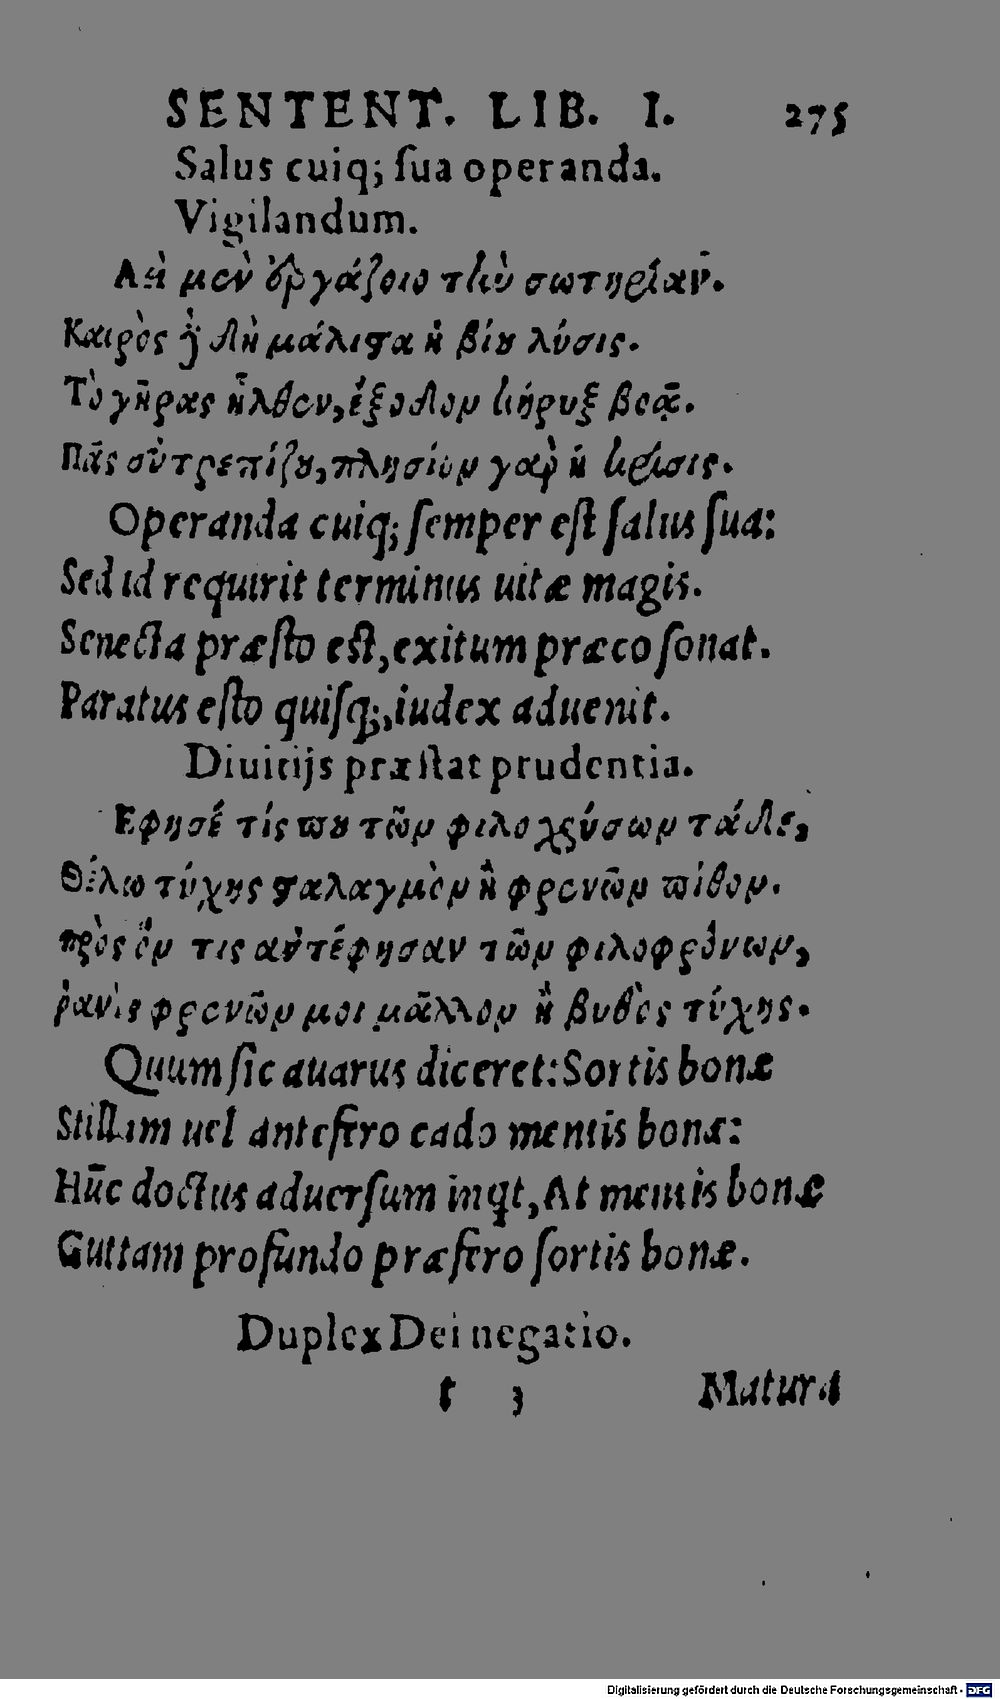 SENTENT. LIB. I. 275
Salus cuiq; ſua operanda.
Vigilandum.
Ἀεὶ μὲν ἐργάζοιο τὴν σωτηρίαν.
Καιρὸς δὲ δὴ μάλιστα ἡ βίου λύσις.
Τὸ γῆρας ἦλθεν, ἔξοδον κήρυξ βοᾷ.
Πᾶς εὐτρεπίζου, πλησίον γὰρ ἡ κρίσις.
Operanda cuiq; ſemper eſt ſalus ſua:
Sed id requirit terminus uitæ magis.
Senecta præſto eſt, exitum præco ſonat.
Paratus eſto quiſq;, iudex aduenit.
Diuitijs præſtat prudentia.
Εφησέ τίς που τῶν φιλοχρύσων τάδε,
Θέλω τύχης σταλαγμὸν ἢ φρενῶν πίθον.
πρὸς ὃν τις αὐτέφησαν τῶν φιλοφρόνων,
ῥανὶς φρενῶν μοι μᾶλλον ἢ βυθὸς τύχης.
Quum ſic auarus diceret: Sortis bonæ
Stillam uel antefero cado mentis bonæ:
Hūc doctus aduerſum inqt, At mentis bonæ
Guttam profundo præfero ſortis bonæ.
Duplex Dei negatio.
t 3 Matura
Digitalisierung gefördert durch die Deutsche Forschungsgemeinschaft - DFG